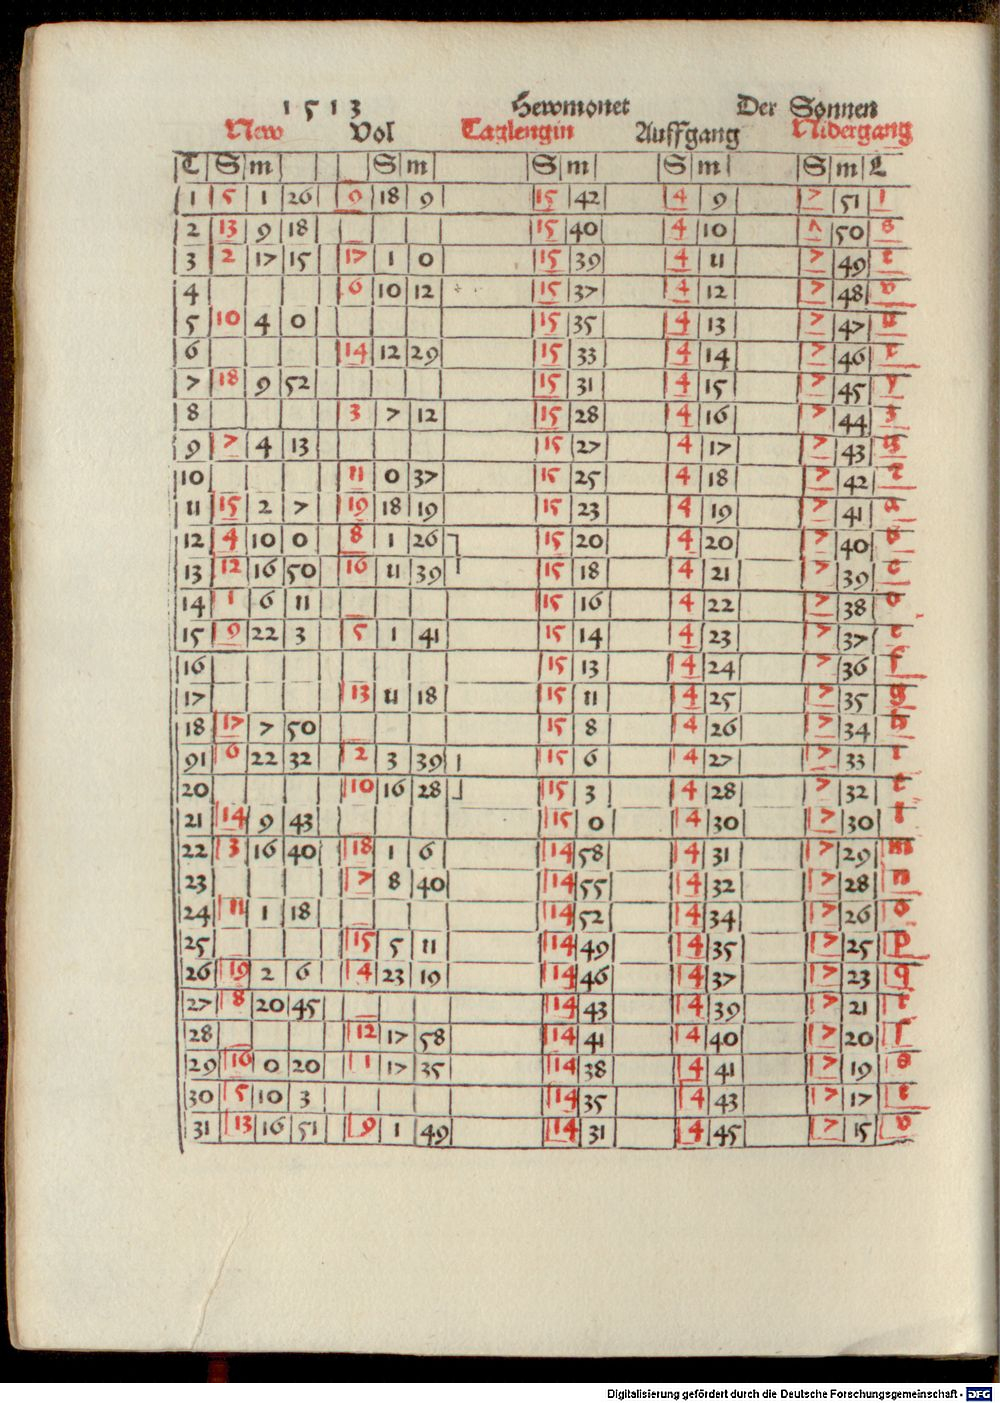 1 5 1 3 Hewmonet Der Sonnen
New Vol Taglengin Auffgang Nidergang
T S m S m S m S m S m L
1 5 1 26 9 18 9 15 42 4 9 7 51
2 13 9 18 15 40 4 10 7 50 s
3 2 17 15 17 1 0 15 39 4 11 7 49 t
4 6 10 12 15 37 4 12 7 48 v
5 10 4 0 15 35 4 13 7 47 u
6 14 12 29 15 33 4 14 7 46
7 18 9 52 15 31 4 15 7 45 y
8 3 7 12 15 28 4 16 7 44 z
9 7 4 13 15 27 4 17 7 43
10 11 0 37 15 25 4 18 7 42
11 15 2 7 19 18 19 15 23 4 19 7 41 a
12 4 10 0 8 1 26 15 20 4 20 7 40 b
13 12 16 50 16 11 39 15 18 4 21 7 39 c
14 1 6 11 15 16 4 22 7 38 d
15 9 22 3 5 1 41 15 14 4 23 7 37 e
16 15 13 4 24 7 36 f
17 13 11 18 15 11 4 25 7 35 g
18 17 7 50 15 8 4 26 7 34 h
91 6 22 32 2 3 39 15 6 4 27 7 33 i
20 10 16 28 15 3 4 28 7 32 k
21 14 9 43 15 0 4 30 7 30 l
22 3 16 40 18 1 6 14 58 4 31 7 29 m
23 7 8 40 14 55 4 32 7 28 n
24 11 1 18 14 52 4 34 7 26 o
25 15 5 11 14 49 4 35 7 25 p
26 19 2 6 4 23 19 14 46 4 37 7 23 q
27 8 20 45 14 43 4 39 7 21 r
28 12 17 58 14 41 4 40 7 20 ſ
29 16 0 20 1 17 35 14 38 4 41 7 19 s
30 5 10 3 14 35 4 43 7 17 t
31 13 16 51 9 1 49 14 31 4 45 7 15 v
Digitalisierung gefördert durch die Deutsche Forschungsgemeinschaft - DFG